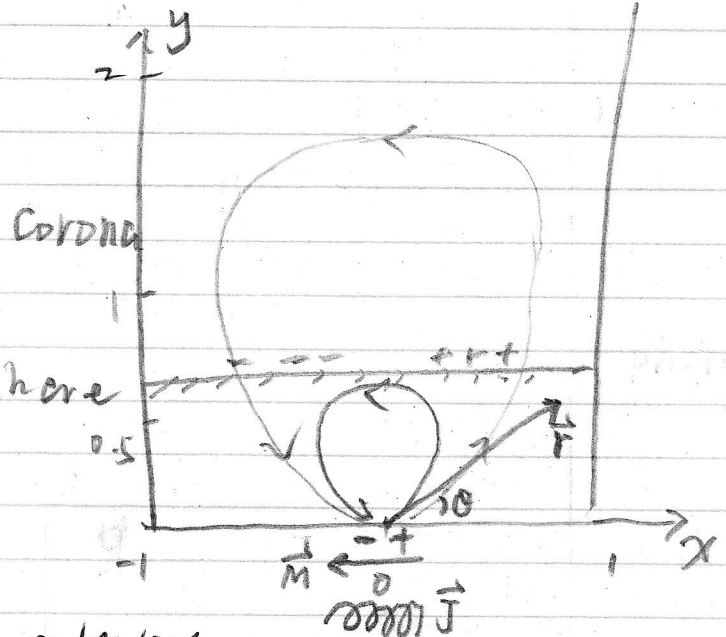 y
2
Corona
1
- - - - + + +
here
0.5
r
θ
- +
-1 M 0 1 x
J